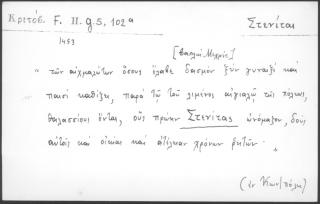 Κριτόβ. F. II. g. 5, 102ᵃ
Στενίται
1453
[Βασιλεὺς Μεχμέτις]
" τῶν αἰχμαλώτων ὅσους ἔλαβε δασμὸν ξὺν γυναιξὶ καὶ
παισὶ καθίζει, παρὰ τῷ τοῦ λιμένος αἰγιαλῷ τῆς πόλεως,
θαλασσίους ὄντας, οὓς πρώην Στενίτας ὠνόμαζον, δοὺς
αὐτοῖς καὶ οἰκίας καὶ ἀτέλειαν χρόνων ῥητῶν. "
(ἐν Κων/πόλει)